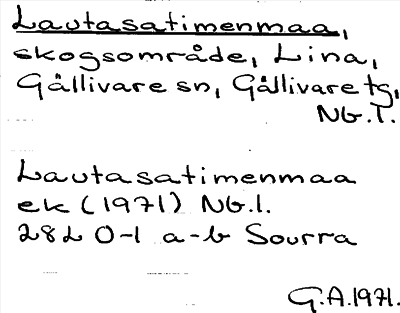 Lautasatimenmaa,
skogsområde, Lina,
Gällivare sn, Gällivare tg,
Nb.l.
Lautasatimenmaa
ek (1971) Nb.l.
28L 0-1 a-b Sourra
G.A.1971.